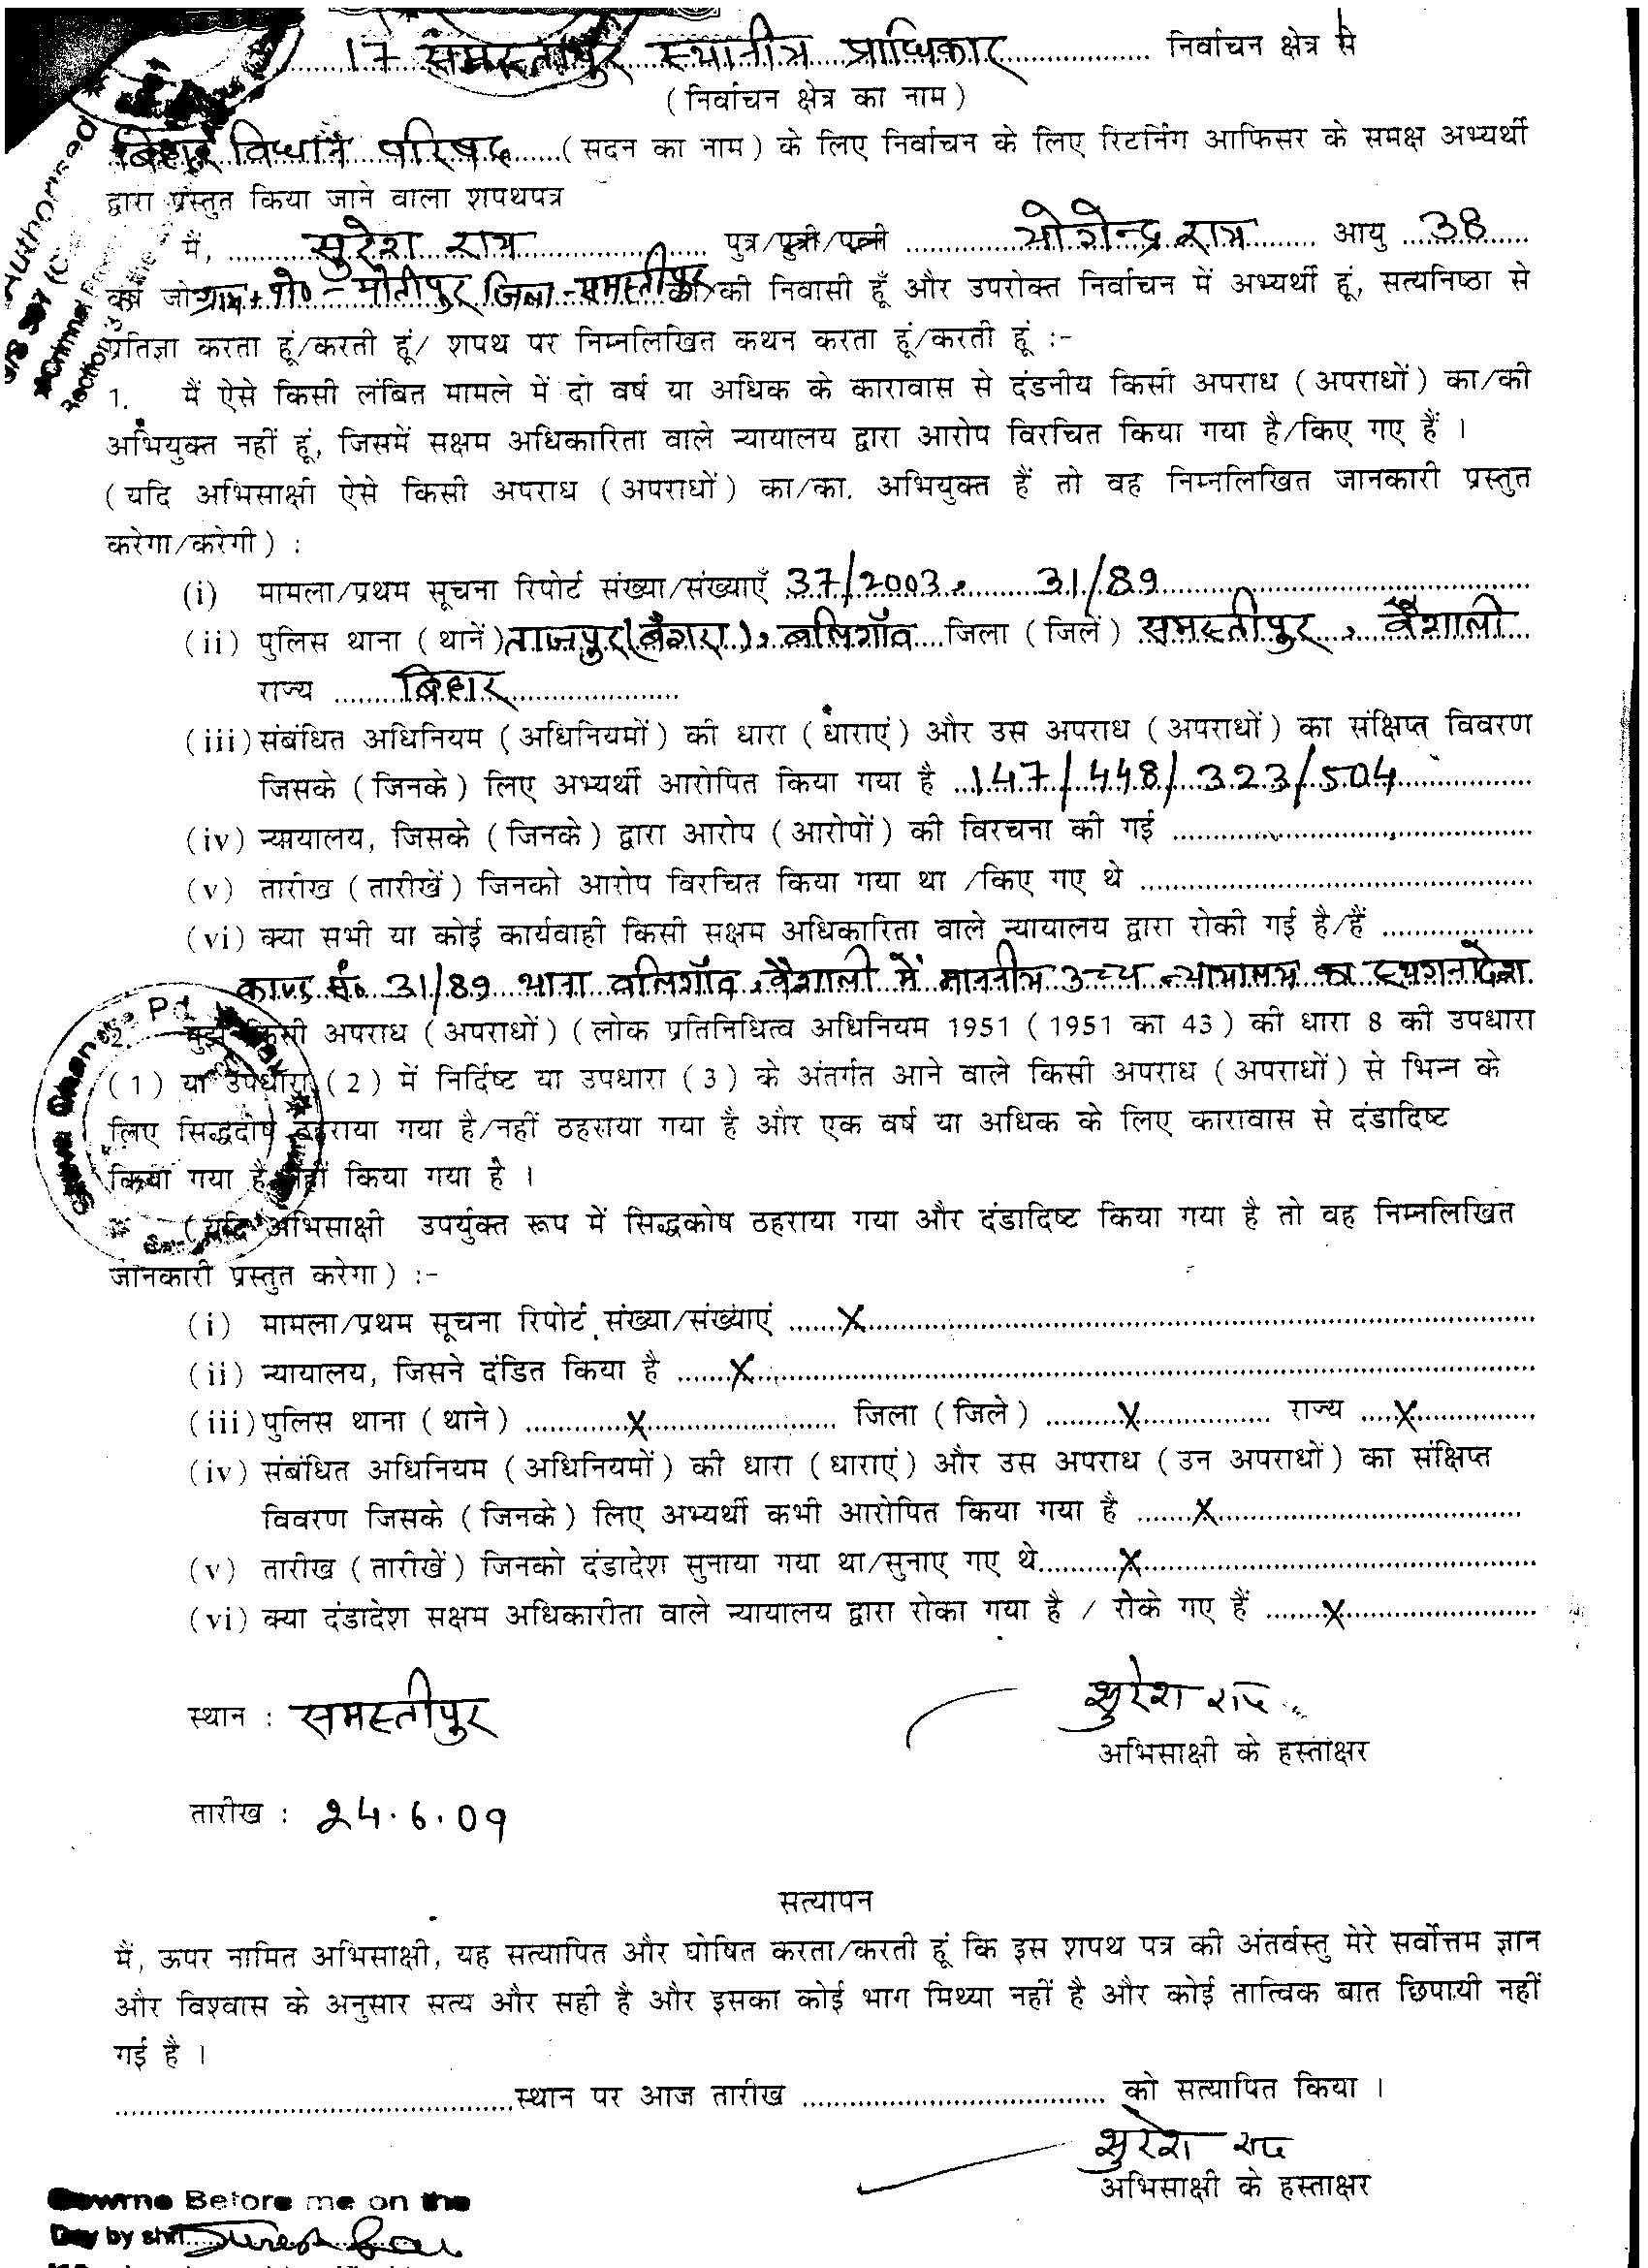 17 समस्तीपुर स्थानीय प्राधिकार निर्वाचन क्षेत्र से
(निर्वाचन क्षेत्र का नाम)
बिहार विधान परिषद (सदन का नाम) के लिए निर्वाचन के लिए रिटर्निंग आफिसर के समक्ष अभ्यर्थी
द्वारा प्रस्तुत किया जाने वाला शपथपत्र
मैं, सुरेश राय पुत्र/पुत्री/पत्नी योगेन्द्र राय आयु 38
वर्ष जो ग्राम+पो०-मोतीपुर जिला-समस्तीपुर का/की निवासी हूँ और उपरोक्त निर्वाचन में अभ्यर्थी हूं, सत्यनिष्ठा से
प्रतिज्ञा करता हूं/करती हूं/ शपथ पर निम्नलिखित कथन करता हूं/करती हूं :-
1. मैं ऐसे किसी लंबित मामले में दो वर्ष या अधिक के कारावास से दंडनीय किसी अपराध (अपराधों) का/की
अभियुक्त नहीं हूं, जिसमें सक्षम अधिकारिता वाले न्यायालय द्वारा आरोप विरचित किया गया है/किए गए हैं ।
(यदि अभिसाक्षी ऐसे किसी अपराध (अपराधों) का/का. अभियुक्त हैं तो वह निम्नलिखित जानकारी प्रस्तुत
करेगा/करेगी) :
(i) मामला/प्रथम सूचना रिपोर्ट संख्या/संख्याएँ 37/2003, 31/89
(ii) पुलिस थाना (थानें) ताजपुर(बंगरा), बलिगाँव जिला (जिलें) समस्तीपुर, वैशाली
राज्य बिहार
(iii) संबंधित अधिनियम (अधिनियमों) की धारा (धाराएं) और उस अपराध (अपराधों) का संक्षिप्त विवरण
जिसके (जिनके) लिए अभ्यर्थी आरोपित किया गया है 147/448/323/504
(iv) न्यायालय, जिसके (जिनके) द्वारा आरोप (आरोपों) की विरचना की गई
(v) तारीख (तारीखें) जिनको आरोप विरचित किया गया था /किए गए थे
(vi) क्या सभी या कोई कार्यवाही किसी सक्षम अधिकारिता वाले न्यायालय द्वारा रोकी गई है/हैं
काण्ड सं० 31/89 थाना वलिगाँव, वैशाली में माननीय उच्च न्यायालय का स्थगनादेश
2. मुझे किसी अपराध (अपराधों) (लोक प्रतिनिधित्व अधिनियम 1951 (1951 का 43) की धारा 8 की उपधारा
(1) या उपधारा (2) में निर्दिष्ट या उपधारा (3) के अंतर्गत आने वाले किसी अपराध (अपराधों) से भिन्न के
लिए सिद्धदोष ठहराया गया है/नहीं ठहराया गया है और एक वर्ष या अधिक के लिए कारावास से दंडादिष्ट
किया गया है नहीं किया गया है ।
(यदि अभिसाक्षी उपर्युक्त रूप में सिद्धकोष ठहराया गया और दंडादिष्ट किया गया है तो वह निम्नलिखित
जानकारी प्रस्तुत करेगा) :-
(i) मामला/प्रथम सूचना रिपोर्ट संख्या/संख्याएं X
(ii) न्यायालय, जिसने दंडित किया है X
(iii) पुलिस थाना (थाने) X जिला (जिले) X राज्य X
(iv) संबंधित अधिनियम (अधिनियमों) की धारा (धाराएं) और उस अपराध (उन अपराधों) का संक्षिप्त
विवरण जिसके (जिनके) लिए अभ्यर्थी कभी आरोपित किया गया है X
(v) तारीख (तारीखें) जिनको दंडादेश सुनाया गया था/सुनाए गए थे X
(vi) क्या दंडादेश सक्षम अधिकारीता वाले न्यायालय द्वारा रोका गया है / रोके गए हैं X
स्थान : समस्तीपुर
सुरेश राय
अभिसाक्षी के हस्ताक्षर
तारीख : 24.6.09
सत्यापन
मैं, ऊपर नामित अभिसाक्षी, यह सत्यापित और घोषित करता/करती हूं कि इस शपथ पत्र की अंतर्वस्तु मेरे सर्वोत्तम ज्ञान
और विश्वास के अनुसार सत्य और सही है और इसका कोई भाग मिथ्या नहीं है और कोई तात्विक बात छिपायी नहीं
गई है ।
स्थान पर आज तारीख को सत्यापित किया ।
सुरेश राय
अभिसाक्षी के हस्ताक्षर
Before me on the
Day by shri Suresh Rai